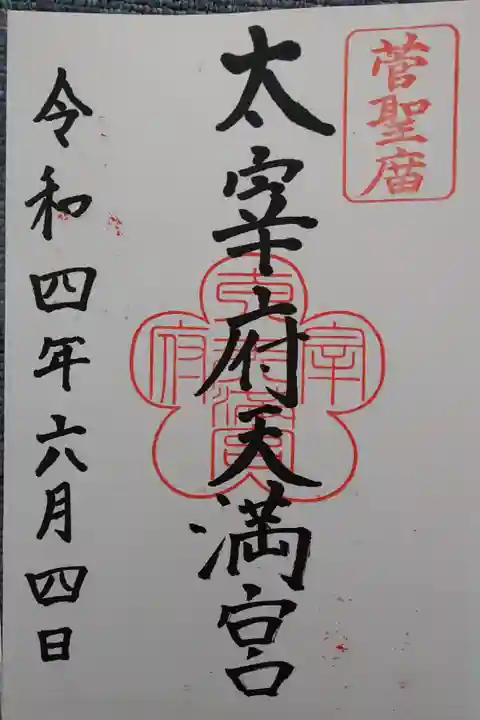 菅聖庿
太宰府天満宮
令和四年六月四日